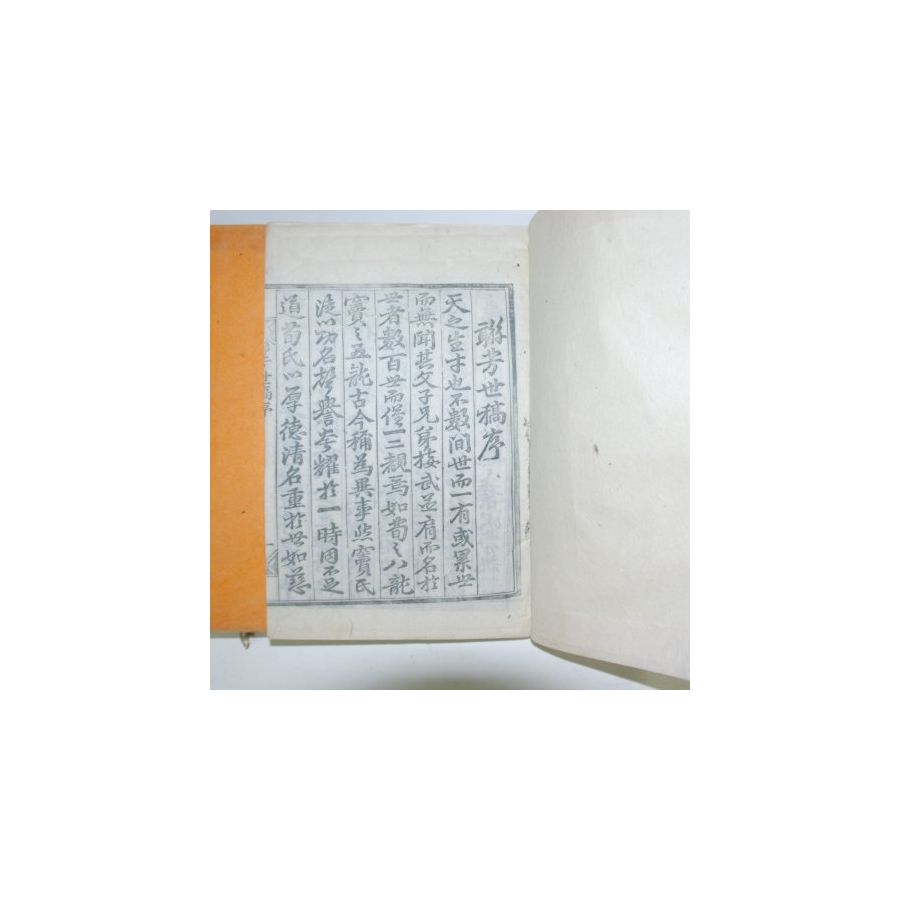 聯芳世稿序
天之生才也不數間世而一有或累世
而無聞其父子兄弟接武並肩而名於
世者數百世而僅一二覯焉如荀之八龍
竇之五龍古今稱為異事然竇氏
徒以功名聲譽夸耀於一時固不足
道荀氏以厚德清名重於世如慈